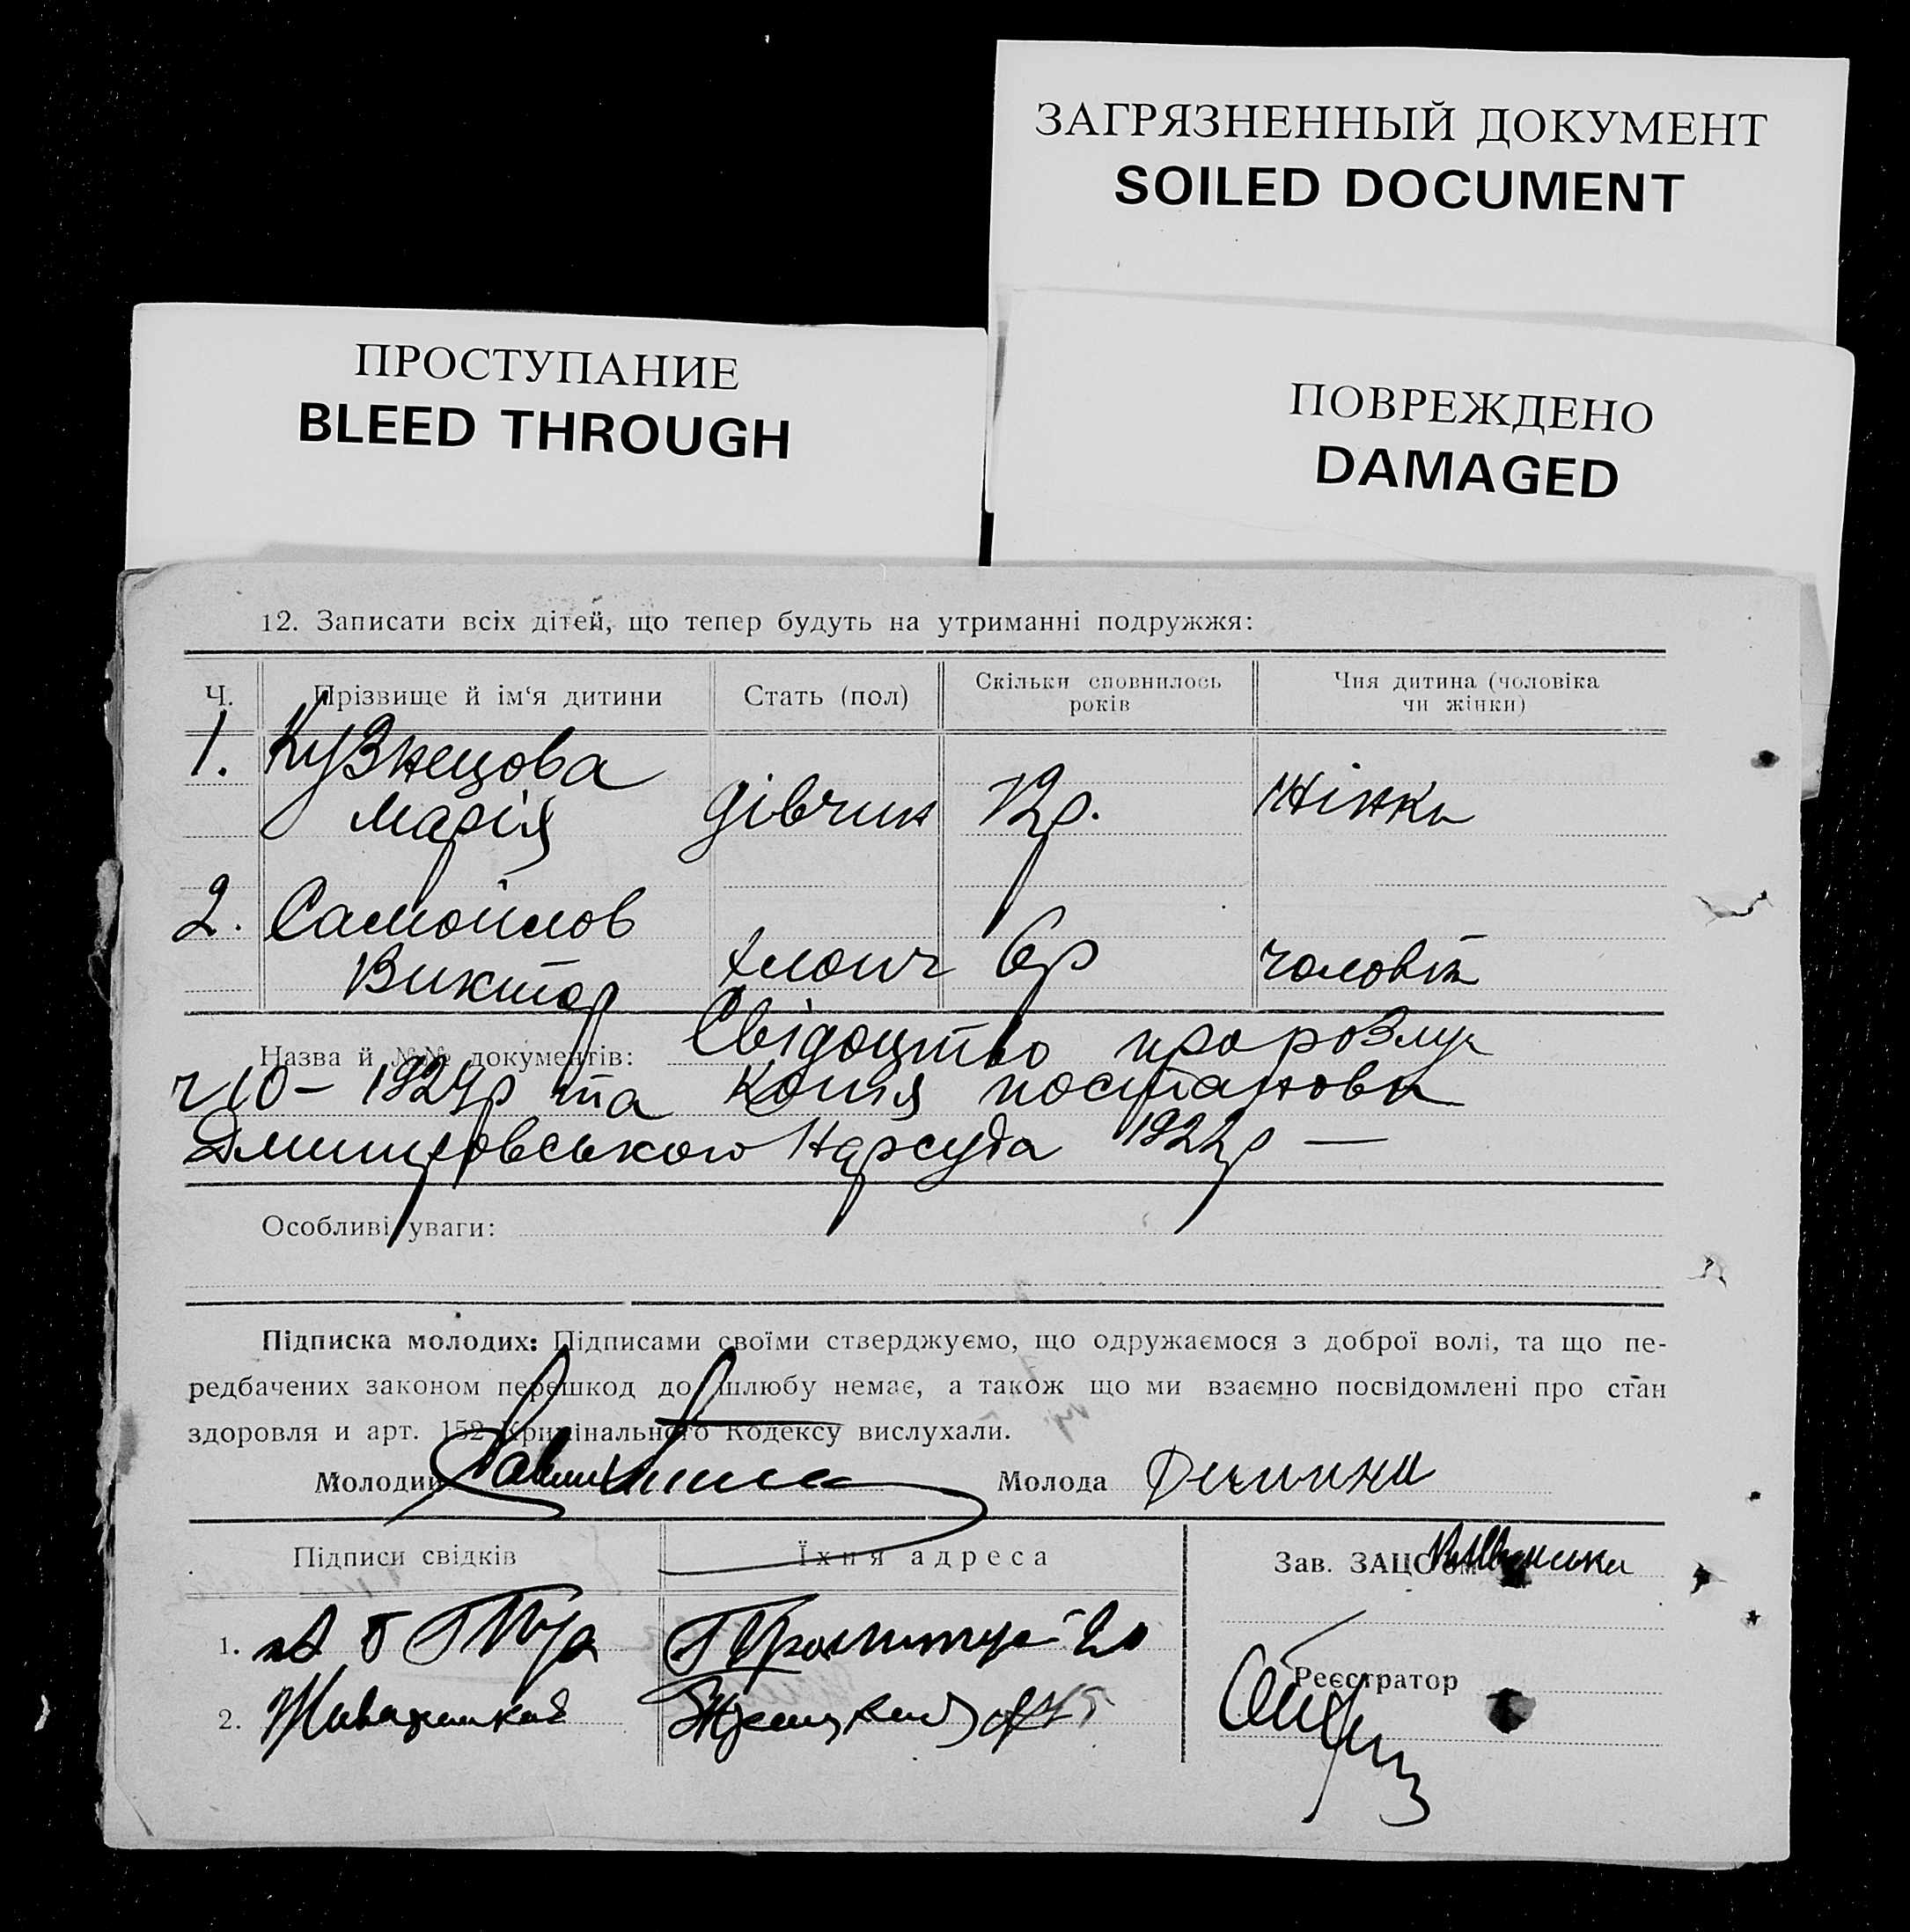 ЗАГРЯЗНЕННЫЙ ДОКУМЕНТ
SOILED DOCUMENT
ПРОСТУПАНИЕ
BLEED THROUGH
ПОВРЕЖДЕНО
DAMAGED
12. Записати всіх дітей, що тепер будуть на утриманні подружжя:
Ч. Прізвище й ім'я дитини Стать (пол) Скільки сповнилось років Чия дитина (чоловіка чи жінки)
1. Кузнецова
Марія дівчин 12р. жінки
2. Самойлов
Виктор хлопч 6р чоловік
Назва й №№ документів: Свідоцтво про розлуч
ч 10 – 1924р та копія постанови
Дмитровського Нарсуда 1922р —
Особливі уваги:
Підписка молодих: Підписами своїми стверджуємо, що одружаємося з доброї волі, та що пе-
редбачених законом перешкод до шлюбу немає, а також що ми взаємно посвідомлені про стан
здоровля и арт. 152 Кримінального Кодексу вислухали.
Молодий Молода
Підписи свідків Їхня адреса Зав. ЗАЦС'ом
1.
Реєстратор
2.